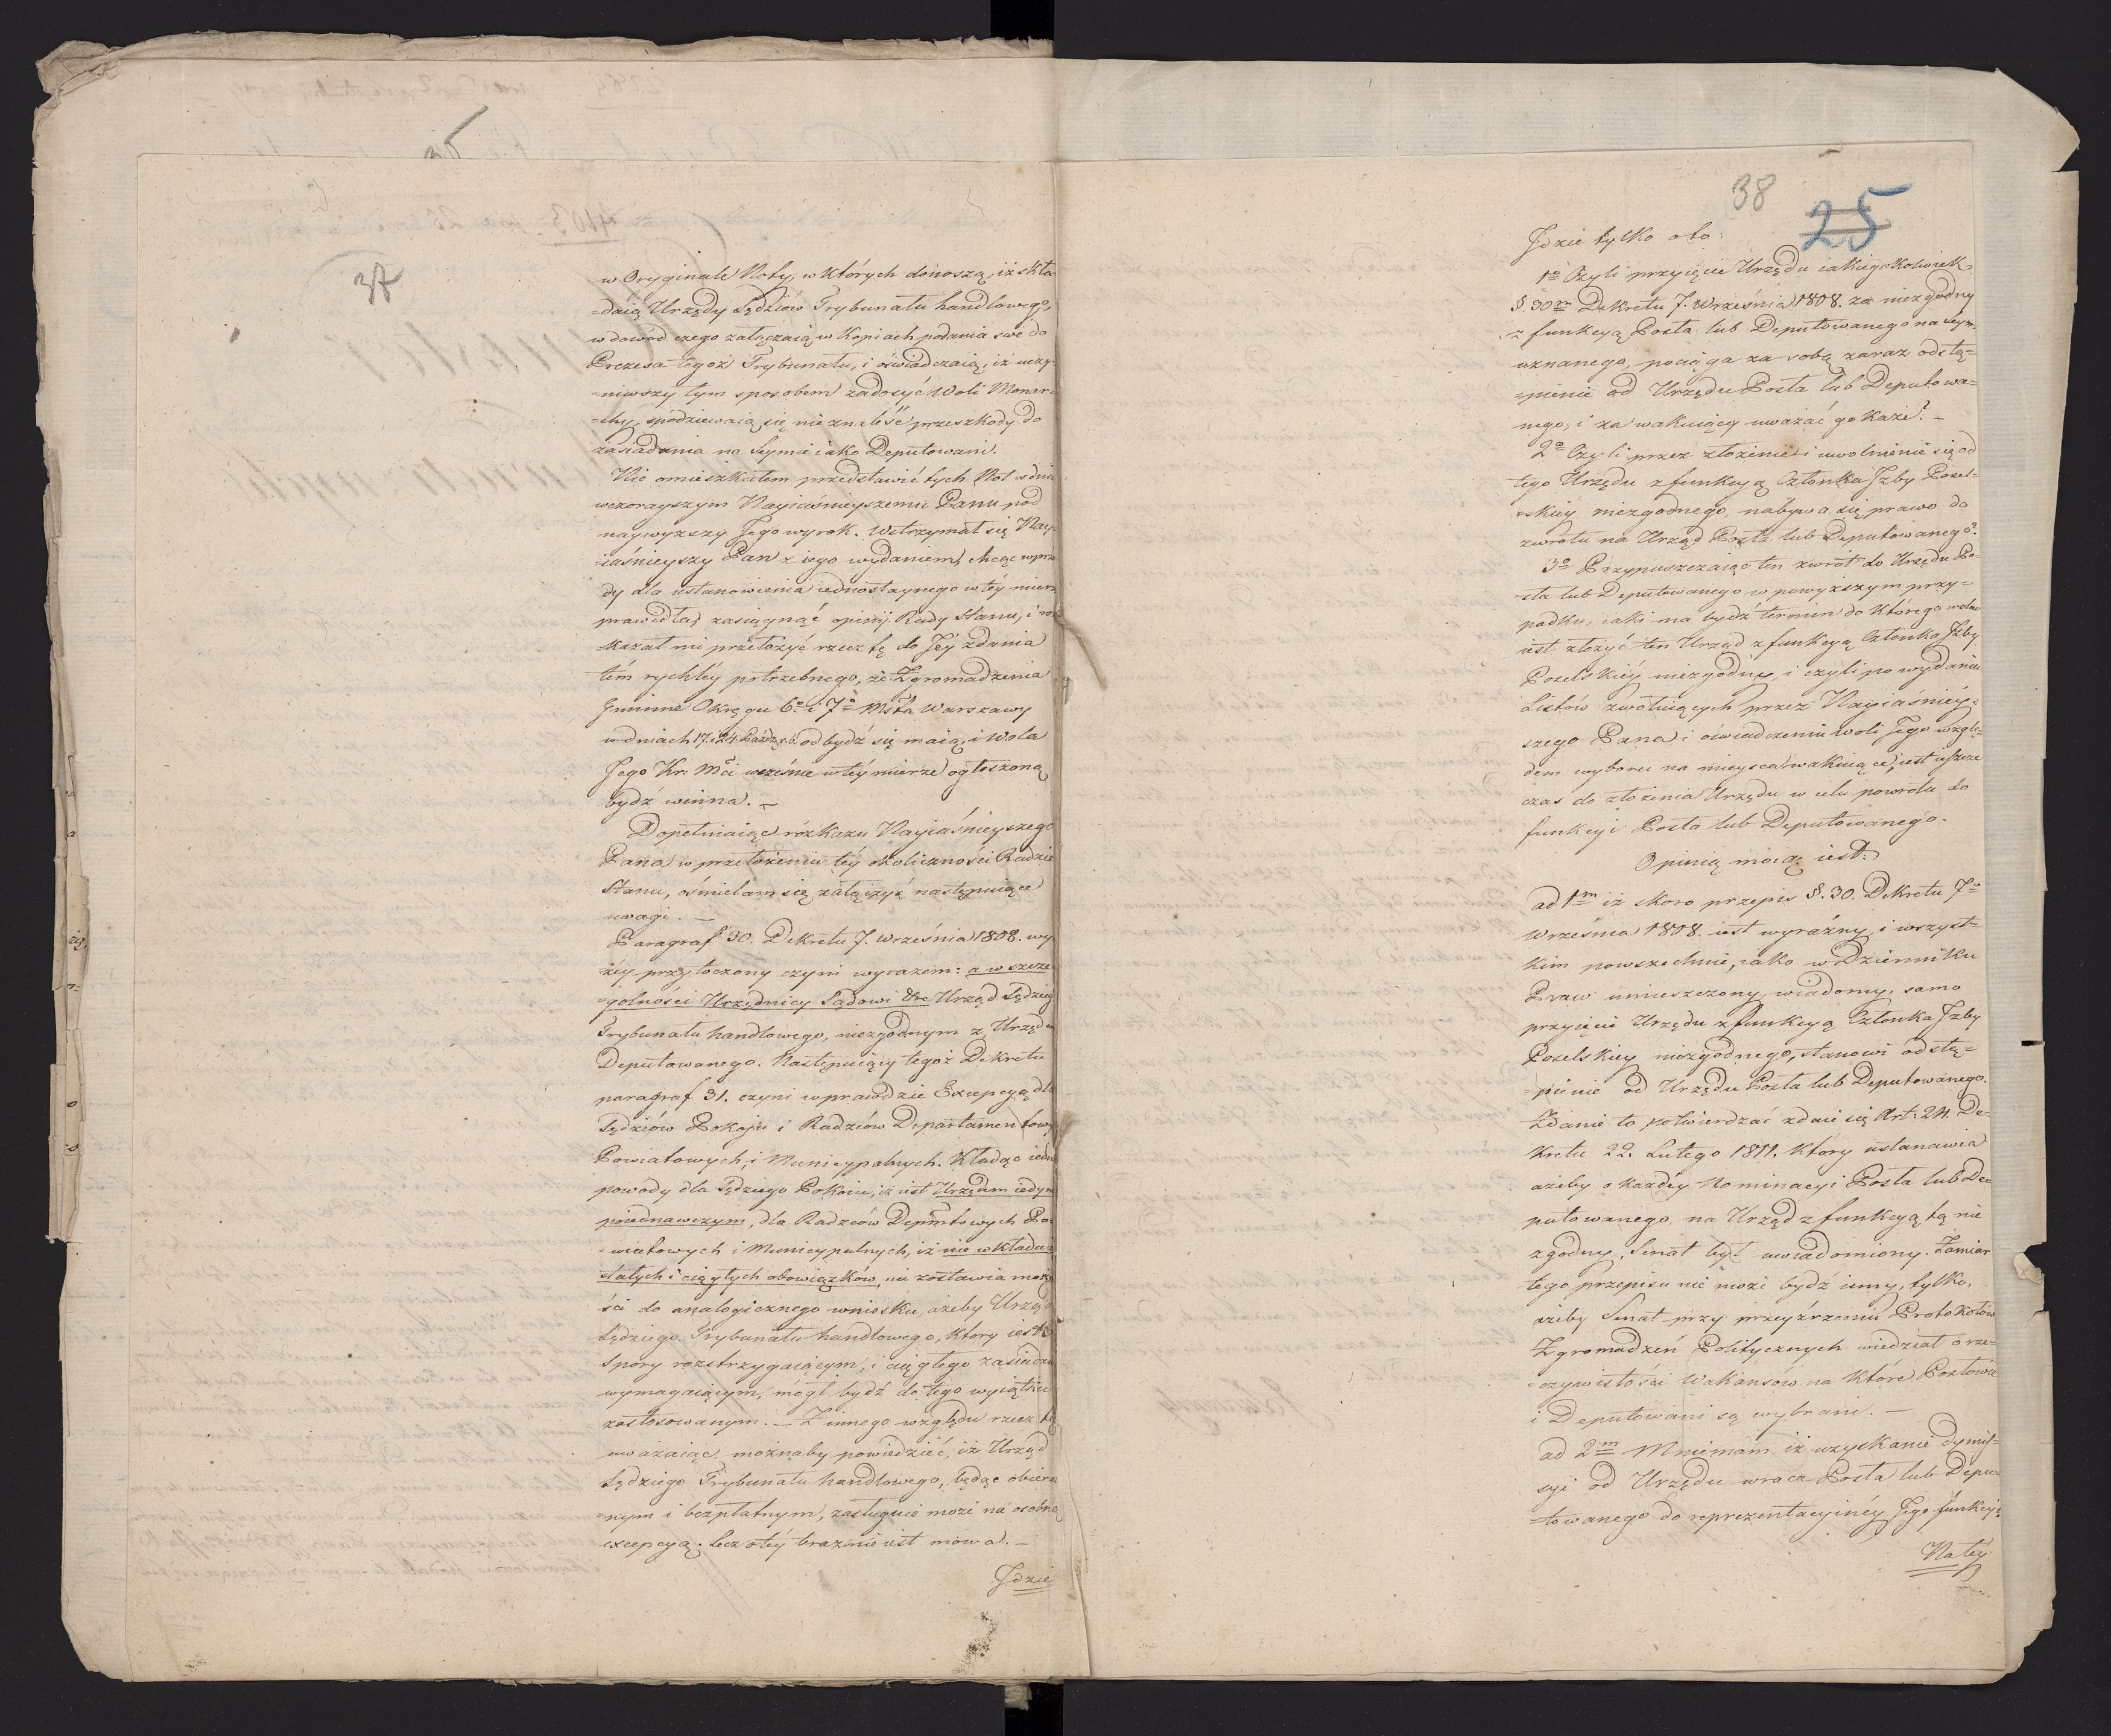 37
w Oryginale Noty, w których donoszą, iż skła-
=daią Urzędy Sędziów Trybunału handlowego,
w dowód czego załączaią w Kopiach podania swe do
Prezesa tegoż Trybunału, i oświadczaią, iż uczy-
=niwszy tym sposobem zadosyć Woli Monar-
=chy, spodziewaią się nie znaleść przeszkody do
zasiadania na Seymie iako Deputowani.
Nie omieszkałem przedstawić tych Not w dniu
wczorayszym Nayiaśnieyszemu Panu pod
naywyższy Jego wyrok. Wstrzymał się Nay-
=iaśnieyszy Pan z iego wydaniem, chcąc wprzo
dy dla ustanowienia iednostaynego w téy mierze
prawidła, zasiągnąć opinij Rady Stanu, i roz
kazał mi przełożyć rzecz tę do Jéy zdania
tém rychléy potrzebnego, że Zgromadzenia
Gminne Okręgu 6o i 7o Msta Warszawy
w dniach 17. i 24. Paźdz. r. b. odbydź się maią, i Wola
Jego Kr: Mci wcześnie w téy mierze ogłoszoną
bydź winna. —
Dopełniaiąc rozkazu Nayiaśnieyszego
Pana w przełożeniu téy okoliczności Radzie
Stanu, ośmielam się załączyć następuiące
uwagi. —
Paragraf 30. Dekretu 7. Września 1808. wy
=żéy przytoczony czyni wyrazem: a w szcze
=gólności Urzędnicy Sądowi &c Urząd Sędzieg
Trybunału handlowego, niezgodnym z Urzęde
Deputowanego. Następuiący tegoż Dekretu
paragraf 31. czyni wprawdzie Excepcyą dla
Sędziów Pokoju i Radzców Departamentowy
Powiatowych, i Municypalnych. Kładąc iedna
powody dla Sędziego Pokoiu, iż iest Urzędem iedyn
poiednawczym, dla Radzców Departowych Po-
=wiatowych i Municypalnych, iż nie wkłada
stałych i ciągłych obowiązków, nie zostawia moż
ści do analogicznego wniosku, ażeby Urząd
Sędziego Trybunału handlowego, który iest
Spory rozstrzygaiącym, i ciągłego zasiadan
wymagaiącym, mógł bydź do tego wyiątku
zastosowanym. — Z innego względu rzecz tę
uważaiąc możnaby powiedzieć, iż Urząd
Sędziego Trybunału handlowego, będąc obiera
=nym i bezpłatnym, zasługuie może na osobną
excepcyą. lecz o téy teraz nie iest mowa. —
Jdzie
38
25
Jdzie tylko o to
1o Czyli przyięcie Urzędu iakiegokolwiek
§ 30m Dekretu 7. Września 1808. za niezgodny
z funkcyą Posła lub Deputowanego na Seym
uznanego, pociąga za sobą zaraz odstą=
=pienie od Urzędu Posła lub Deputowa=
nego, i za wakuiący uważać go każe? —
2o Czyli przez złożenie i uwolnienie się od
tego Urzędu z funkcyą Członka Jzby Posel-
=skiéy niezgodnego, nabywa się prawo do
zwrotu na Urząd Posła lub Deputowanego?
3o Przypuszczaiąc ten zwrót do Urzędu Po=
=sła lub Deputowanego w powyższym przy=
padku, iaki ma bydź termin do którego wolno
iest złożyć ten Urząd z funkcyą Członka Jzby
Poselskiéy niezgodny, i czyli po wydaniu
Listów zwołuiących przez Nayiaśniéy=
szego Pana i oświadczeniu Woli Jego wzglę=
dem wyboru na mieysca wakuiące, iest ieszcze
czas do złożenia Urzędu w celu powrotu do
funkcyi Posła lub Deputowanego.
Opinią moią iest:
ad 1m iż skoro przepis §. 30. Dekretu 7o
Września 1808. iest wyraźny, i wszyst=
kim powszechnie, iako w Dzienniku
Praw umieszczony, wiadomy, samo
przyięcie Urzędu z funkcyą Członka Jzby
Poselskiéy niezgodnego, stanowi odstą=
=pienie od Urzędu Posła lub Deputowanego.
Zdanie to potwierdzać zdaie się Art: 24. De-
kretu 22. Lutego 1811. który ustanawia
ażeby o każdéy Nominacyi Posła lub De=
putowanego na Urząd z funkcyą tą nie
zgodny, Senat był uwiadomiony. Zamiar
tego przepisu nie może bydź inny, tylko,
ażeby Senat przy przeyźrzeniu Protokołów
Zgromadzeń Politycznych wiedział o rze=
=czywistości Wakansow na które Posłowie
i Deputowani są wybrani. —
ad 2m Mniemam iż uzyskanie dymis=
syi od Urzędu wraca Posła lub Depu=
=towanego do reprezentacyinéy Jego funkcyi.
Na téy